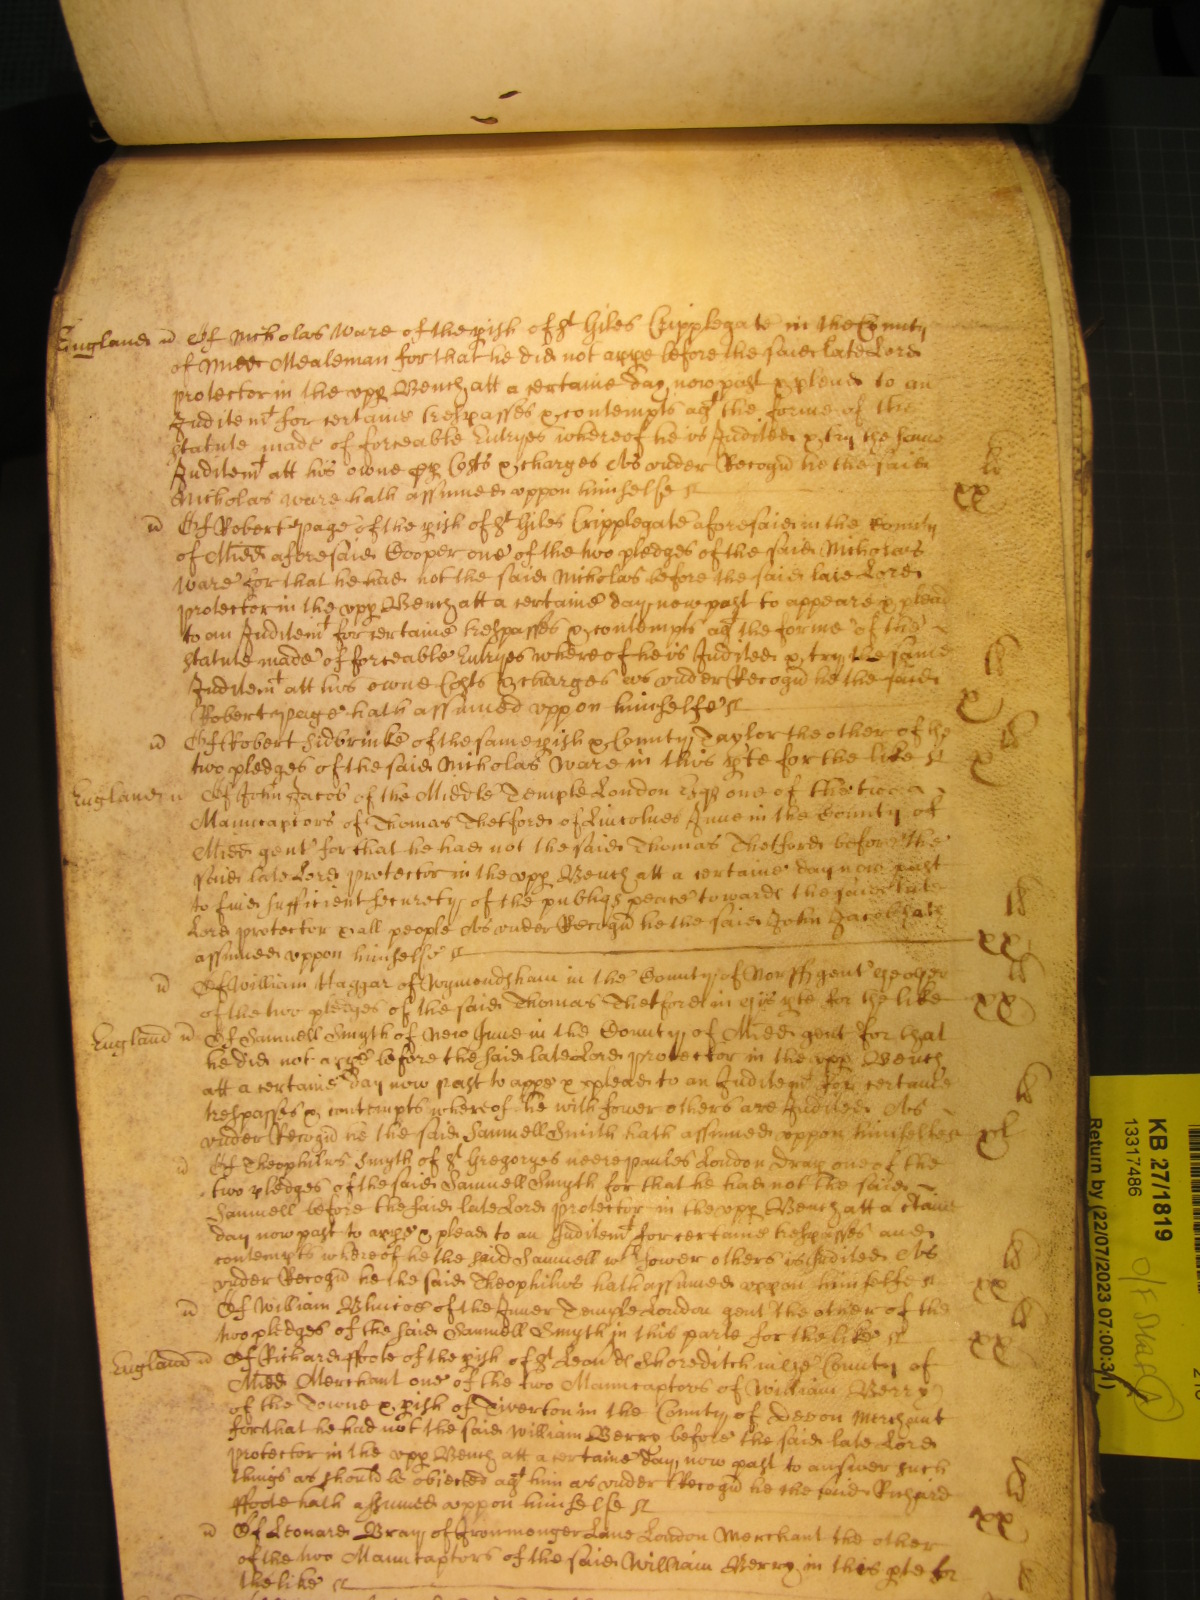 England ss Of Nicholas Ware of the pish of St Giles Cripplegate in the County
of Midd Mealeman for that he did not appe before the said late Lord
protector in the vpp Bench att a certaine day now past & plead to an
Inditemt for certaine trespasses & contempts agt the forme of the
statute made of forceable Entryes whereof he is Indited & try the same
Inditemt att his owne Costs & charges As vnder Recogn he the said
Nicholas Ware hath assumed vppon himselfe
li
xx
Of Robert Page of the pish of St Giles Cripplegate aforesaid in the County
of Midd aforesaid Cooper one of the two pledges of the said Nicholas
Ware for that he had not the said Nicholas before the said late Lord
protector in the vpp Bench att a certaine day now past to appeare & plead
to an Inditemt for certaine trespasses & contempts agt the forme of the
statute made of forceable Entryes whereof he is Indited & try the same
Inditemt att his owne Costs & charges as vnder Recogn he the said
Robert Page hath assumed vppon himselfe
li
x
Of Robert Sidbrinke of the same pish & County Taylor the other of the
two pledges of the said Nicholas Ware in this pte for the like
li
x
England Of John Jacob of the Middle Temple London Esq one of the two
Manucaptors of Thomas Thetford of Lincolnes Inne in the County of
Midd gent for that he had not the said Thomas Thetford before the
said late Lord protector in the vpp Bench att a certaine day now past
to find sufficient securety of the publiq peace towards the said late
Lord protector & all people As vnder Recogn he the said John Jacob hath
assumed vppon himselfe
li
xx
Of William Haggar of Wymondham in the County of Norff gent the other
of the two pledges of the said Thomas Thetford in this pte for the like
li
xx
England Of Samuell Smyth of New Inne in the County of Midd gent for that
he did not appe before the said late Lord protector in the vpp Bench
att a certaine day now past to appe & plead to an Inditemt for certaine
trespasses & contempts whereof he with fower others are Indited As
vnder Recogn he the said Samuell Smith hath assumed vppon himselfe
li
xl
Of Theophilus Smyth of St Gregoryes neere Paules London Drap one of the
two pledges of the said Samuell Smyth for that he had not the said
Samuell before the said late Lord protector in the vpp Bench att a ctaine
day now past to appe & plead to an Inditemt for certaine trespasses and
contempts whereof he the said Samuell wth fower others is Indited As
vnder Recogn he the said Theophilus hath assumed vppon himselfe
li
xx
Of William Blincoe of the Inner Temple London gent the other of the
two pledges of the said Samuell Smyth in this parte for the like
li
xx
England Of Richard ffoote of the pish of St Leonards Shoreditch in the County of
Midd Merchant one of the two Manucaptors of William Berry
of the Towne & pish of Tiverton in the County of Devon Merchant
for that he had not the said William Berry before the said late Lord
protector in the vpp Bench att a certaine day now past to answer such
things as should be objected agt him as vnder Recogn he the said Richard
ffoote hath assumed vppon himselfe
li
xx
Of Leonard Bray of Ironmonger Lane London Merchant the other
of the two Manucaptors of the said William Berry in this pte for
the like
li
KB 27/1819
13317486
Return by (22/07/2023 07:00:3